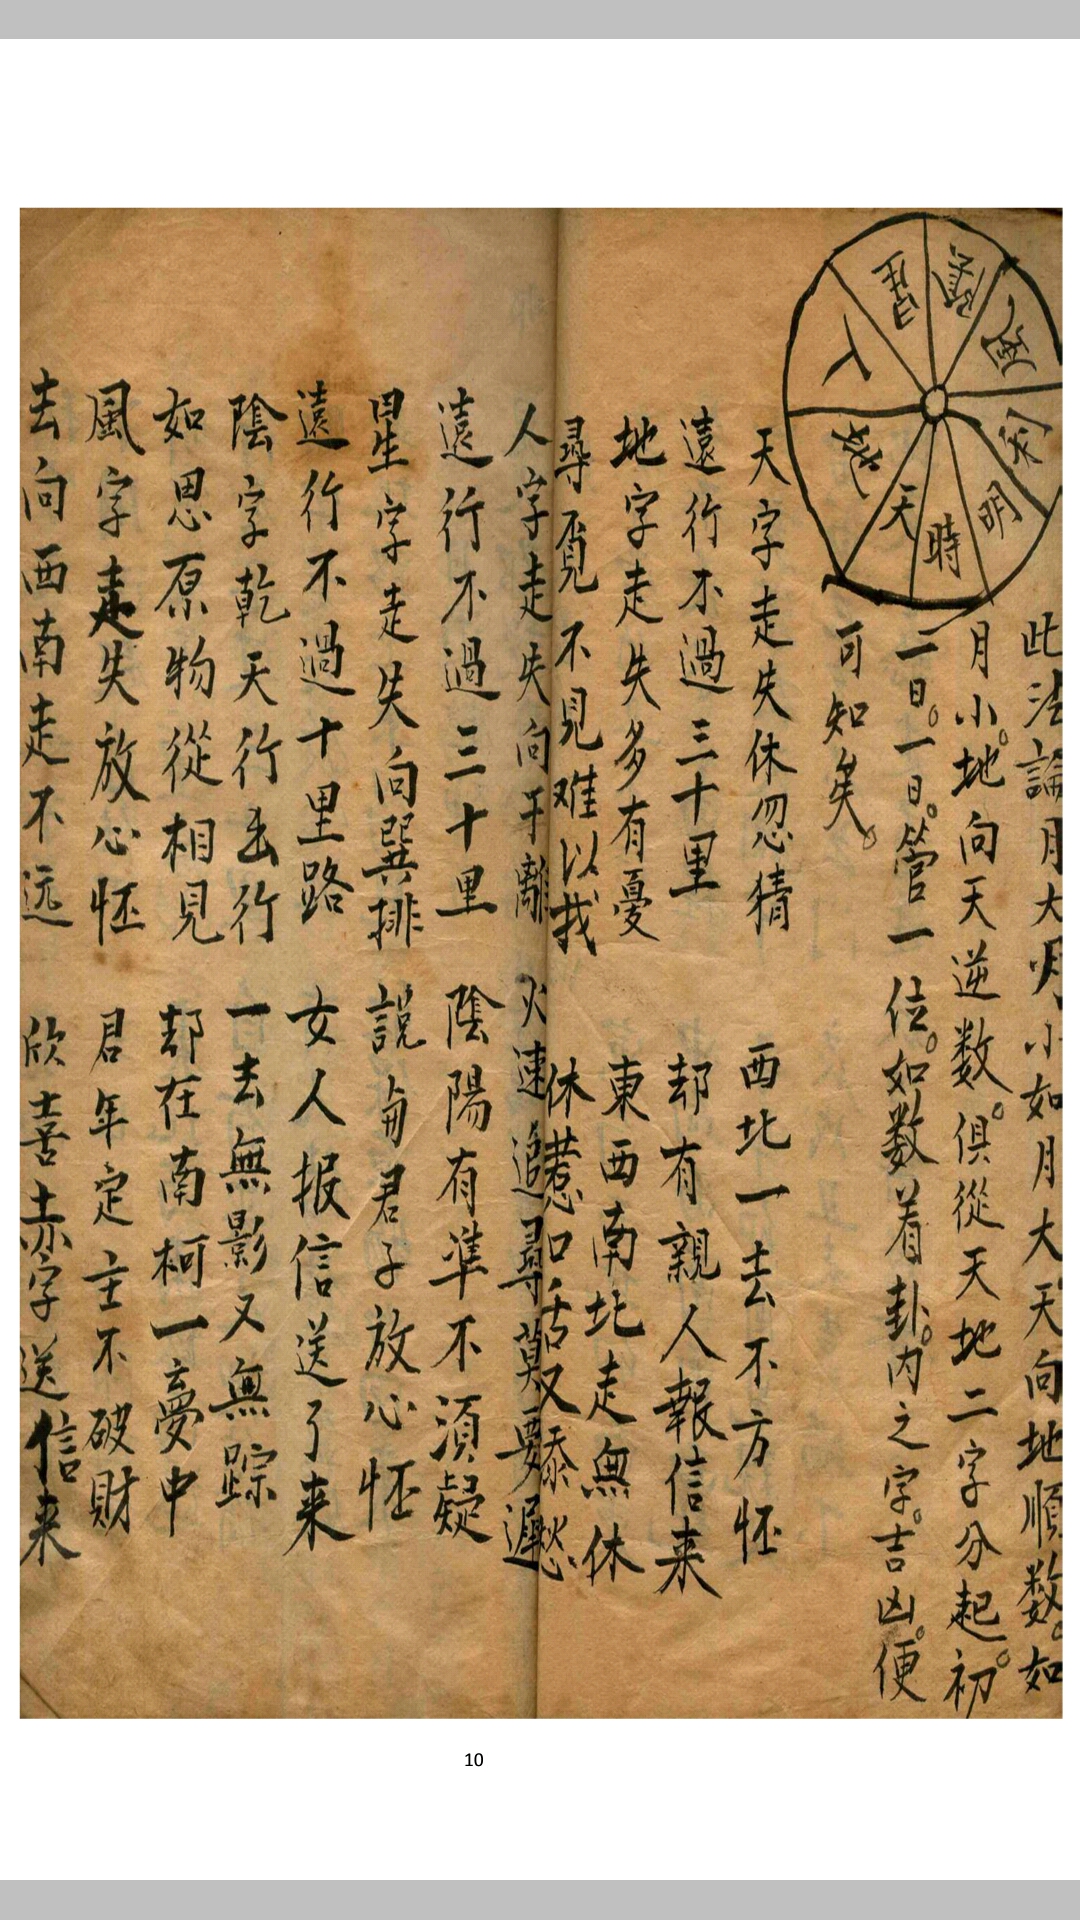 天
地
人
星
陰
風
明
時
此法論月大月小如月大天向地順数。如
月小。地向天逆数。俱從天地二字分起。初
二日。一日。管一位。如数着卦。内之字。吉凶。便
可知矣。
天字走失休忽猜 西北一去不方怪
遠行不過三十里 却有親人報信来
地字走失多有憂 東西南北走無休
尋覓不見难以找 休惹口舌又添愁
人字走失向于離 火速追尋莫要遲
遠行不過三十里 陰陽有準不須疑
星字走失向巽排 説与君子放心怪
遠行不過十里路 女人报信送了来
陰字乾天行去行 一去無影又無踪
如思原物從相見 却在南柯一夢中
風字走失放心怪 君年定主不破財
去向西南走不远 欣喜赤字送信来
10